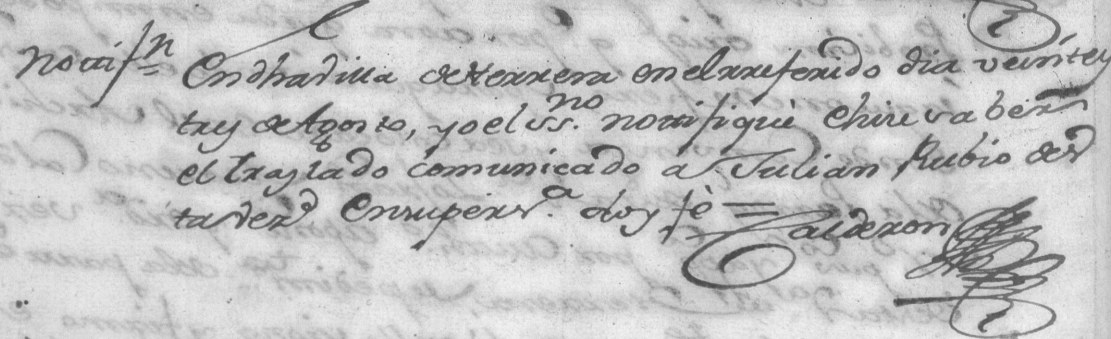 Notifn En dha villa de Herrera en el referido dia veinte y
tres de Agosto, yo el ssno. notifiquè è hize saber
el traslado comunicado a Julian Rubio de es
ta vezd En su persa. doy fè = Calderon